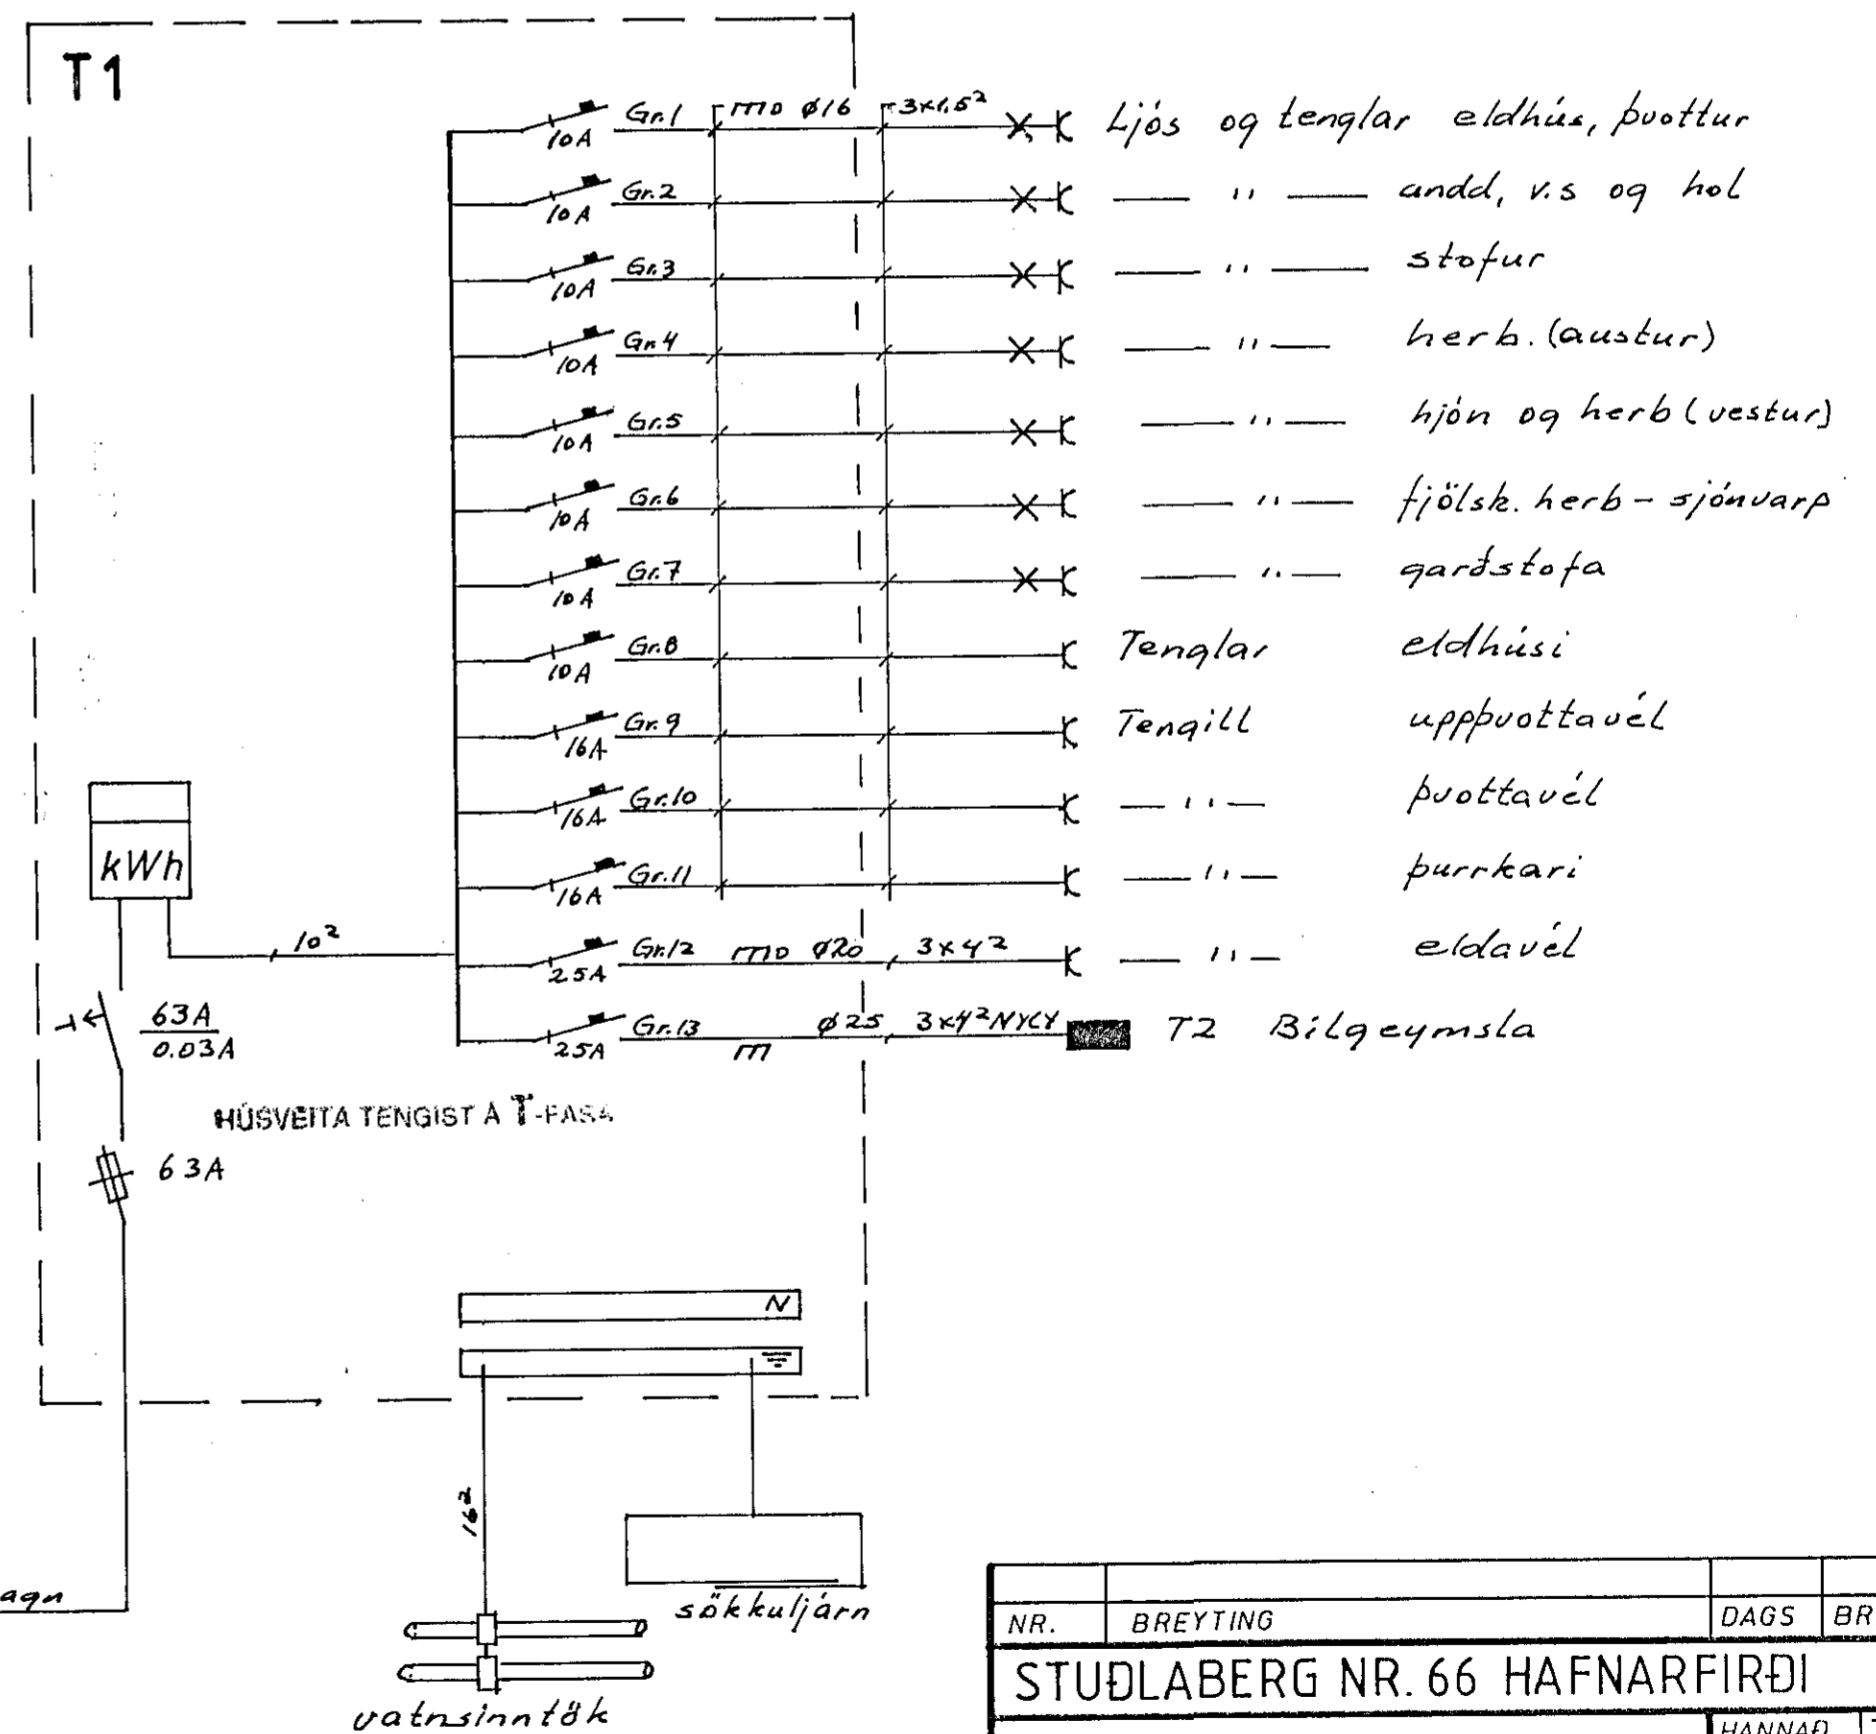 T1
10A Gr.1 m10 ø16 3x1,5² Ljós og tenglar eldhús, þvottur
10A Gr.2 — " — andd, v.s og hol
10A Gr.3 — " — stofur
10A Gr.4 — " — herb. (austur)
10A Gr.5 — " — hjón og herb (vestur)
10A Gr.6 — " — fjölsk. herb - sjónvarp
10A Gr.7 — " — garðstofa
10A Gr.8 Tenglar eldhúsi
16A Gr.9 Tengill uppþvottavél
16A Gr.10 — " — þvottavél
16A Gr.11 — " — þurrkari
25A Gr.12 m10 ø20 3x4² — " — eldavél
25A Gr.13 m ø25 3x4² NYCY T2 Bílgeymsla
kWh
10²
63A
0.03A
HÚSVEITA TENGIST Á T-FASA
63A
N
16²
sökkuljárn
vatnsinntök
agn
NR. BREYTING DAGS BR
STUÐLABERG NR. 66 HAFNARFIRÐI
HANNAÐ